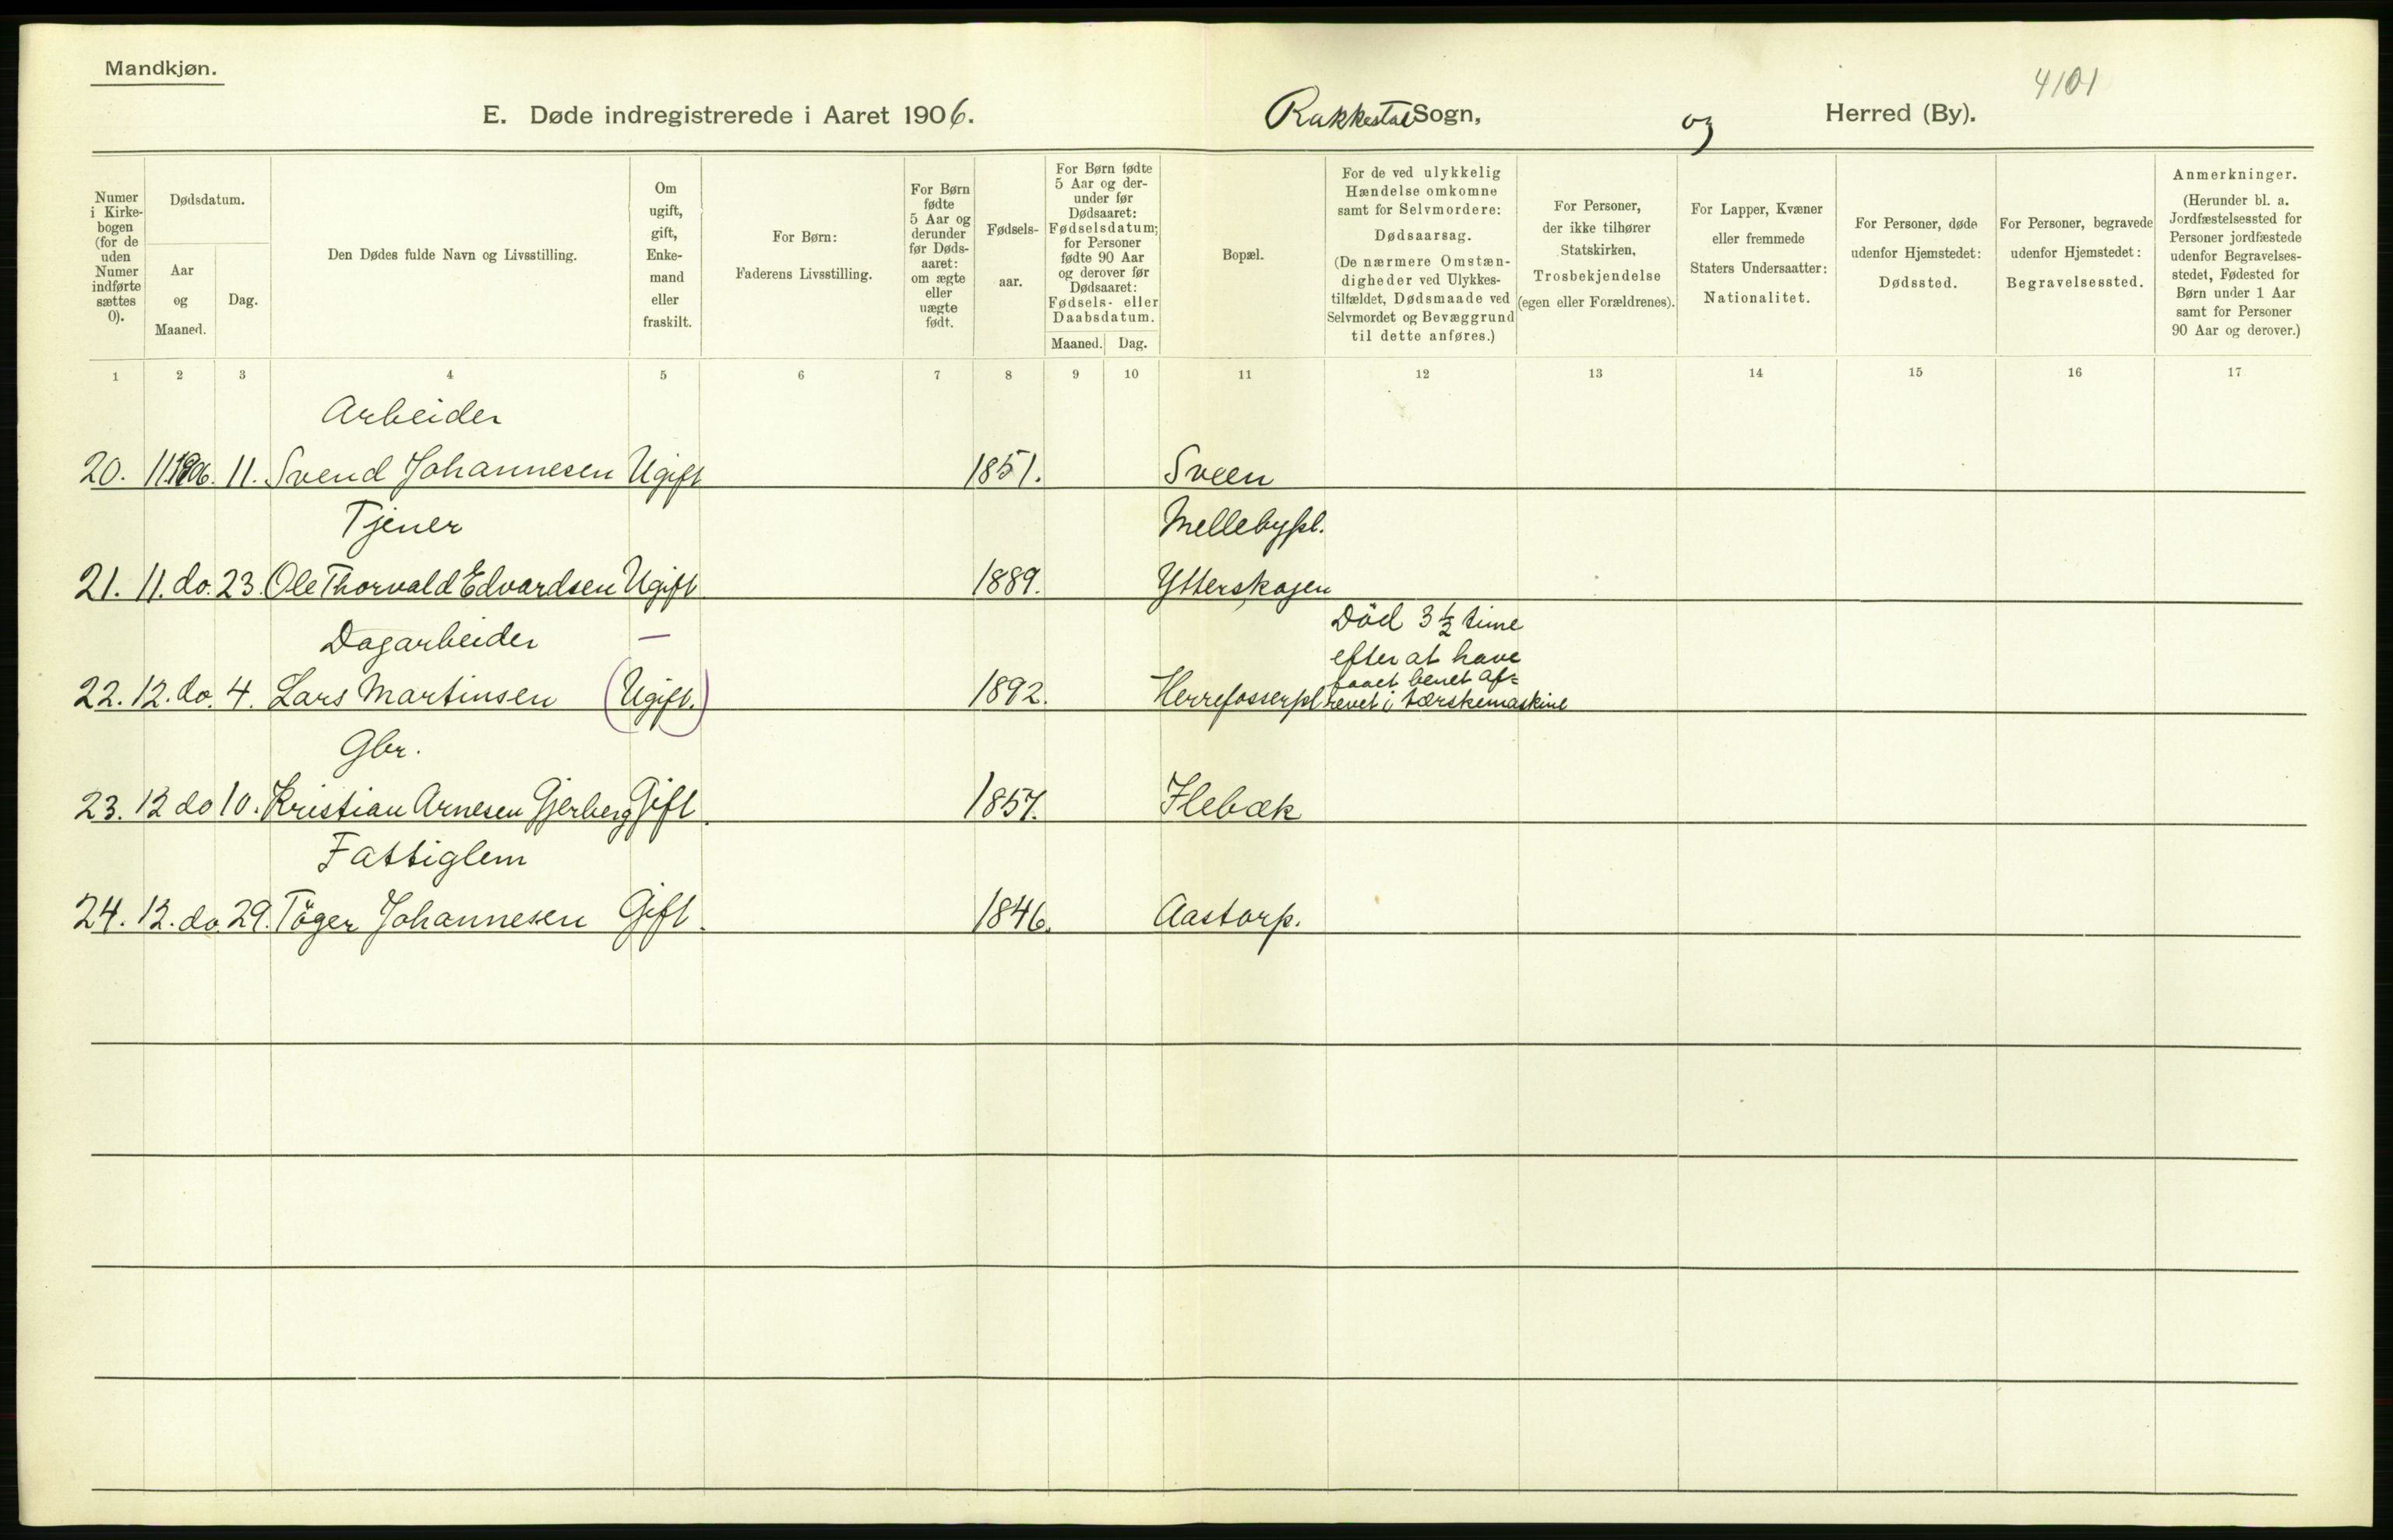 Mandkjøn.
4101
E. Døde indregistrerede i Aaret 1906. Rakkestad Sogn, og Herred (By).
Numer i Kirkebogen (for de uden Numer indførte sættes 0).
Dødsdatum.
Aar og Maaned.
Dag.
Den Dødes fulde Navn og Livsstilling.
Om ugift, gift, Enkemand eller fraskilt.
For Børn: Faderens Livsstilling.
For Børn fødte 5 Aar og derunder før Dødsaaret: om ægte eller uægte født.
Fødselsaar.
For Børn fødte 5 Aar og derunder før Dødsaaret: Fødselsdatum; for Personer fødte 90 Aar og derover før Dødsaaret: Fødsels- eller Daabsdatum.
Maaned. Dag.
Bopæl.
For de ved ulykkelig Hændelse omkomne samt for Selvmordere: Dødsaarsag. (De nærmere Omstændigheder ved Ulykkestilfældet, Dødsmaade ved Selvmordet og Bevæggrund til dette anføres.)
For Personer, der ikke tilhører Statskirken, Trosbekjendelse (egen eller Forældrenes).
For Lapper, Kvæner eller fremmede Staters Undersaatter: Nationalitet.
For Personer, døde udenfor Hjemstedet: Dødssted.
For Personer, begravede udenfor Hjemstedet: Begravelsessted.
Anmerkninger. (Herunder bl. a. Jordfæstelsessted for Personer jordfæstede udenfor Begravelsesstedet, Fødested for Børn under 1 Aar samt for Personer 90 Aar og derover.)
1 2 3 4 5 6 7 8 9 10 11 12 13 14 15 16 17
Arbeider
20. 11.1906. 11. Svend Johannesen Ugift 1851. Sveen
Tjener Mellebypl.
21. 11. do. 23. Ole Thorvald Edvardsen Ugift 1889. Ytterskogen
Dagarbeider —
Död 3 ½ time
efter at have
faaet benet af=
22. 12. do. 4. Lars Martinsen (Ugift.) 1892. Herrefosserpl revet i tærskemaskine
Gbr.
23. 12 do 10. Kristian Arnesen Gjerberg Gift. 1857. Flebæk
Fattiglem
24. 12. do. 29. Töger Johannesen Gift. 1846. Aastorp.